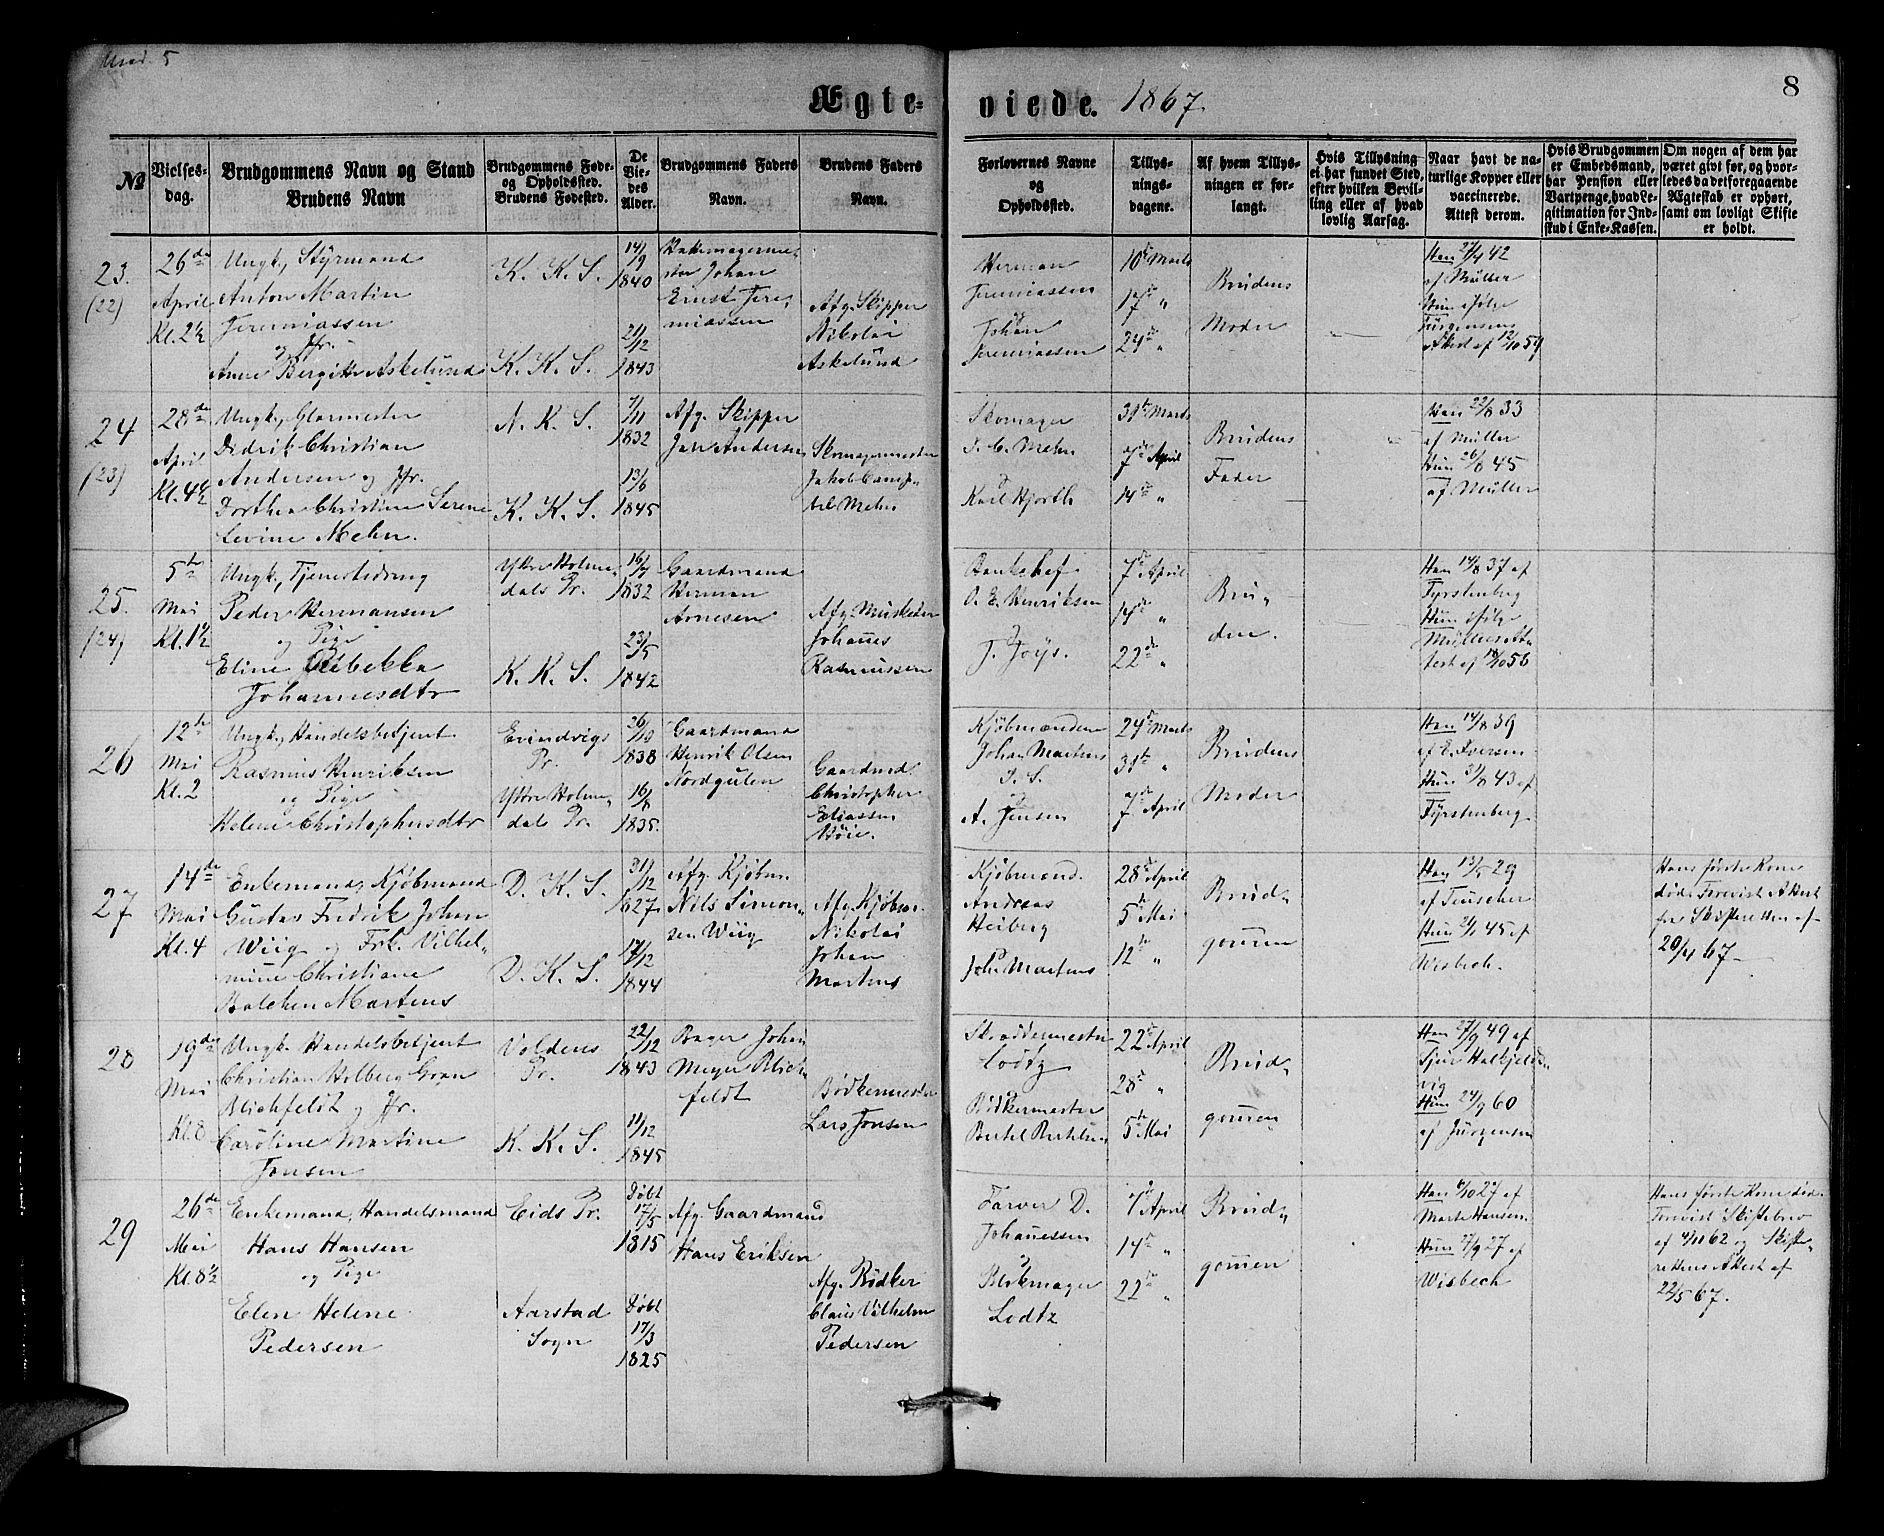 Ægte-
viede. 1867.
8
No
Vielses-
dag.
Brudgommens Navn og Stand
Brudens Navn
Brudgommens Føde-
og Opholdssted.
Brudens Fødested.
De
Vie-
des
Alder.
Brudgommens Faders
Navn.
Brudens Faders
Navn.
Forlovernes Navne
og
Opholdssted.
Tillys-
nings-
dagene.
Af hvem Tillys-
ningen er for-
langt.
Hvis Tillysning
ei har fundet Sted,
efter hvilken Bevil-
ling eller af hvad
lovlig Aarsag.
Naar havt de na-
turlige Kopper eller
vaccinerede.
Attest derom.
Hvis Brudgommen
er Embedsmand,
har Pension eller
Vartpenge, hvad Le-
gitimation for Ind-
skud i Enke-Kassen.
Om nogen af dem har
været givt før, og hvor-
ledes da det foregaaende
Ægteskab er ophørt,
samt om lovligt Skifte
er holdt.
23.
(22)
26de
April
Kl. 2½
Ungk, Styrmand
Anton Martin
Jeremiassen
og Jfr.
Anne Bergitte Askelund
K. K. S.
K. K. S.
14/9
1840
21/12
1843
ster Johan
Ernst Jere-
miassen
Afg. Skipper
Nikolai
Askelund
Herman
Jeremiassen
Johan
Jeremiassen
10de Marts
17de "
24de "
Brudens
Moder
Han 27/4 42
af Müller
Hun ifølge
Jürgensens
Attest af 12/10 59
24
(23)
28de
April
Kl. 4½
Ungk, Glarmester
Didrik Christian
Andersen og Jfr.
Dorthea Christine Serene
Levine Mehn.
N. K. S.
K. K. S.
7/11
1832
13/6
1845
Afg. Skipper
Jan Andersen
Skomagermester
Jakob
Mehn
Skomager
J. C. Mehn
og
Karl Hjorth
31te Marts
7de April
14de "
Brudens
Fader
Han 22/8 33
af Müller
Hun 26/8 45
af Müller
25.
(24)
5te
Mai
Kl. 1½
Ungk, Tjenestedreng
Peder Hermansen
og Pige
Eline Rebekka
Johannesdtr
Yttre Holme-
dals Pr.
K. K. S.
16/7
1832
23/5
1842
Gaardmand
Herman
Arnesen
Afg. Musketer
Johanes
Rasmussen
O. E. Henriksen
og
J. Joys.
7de April
14de "
22de "
Bru-
den.
Han 14/8 37 af
Fyrstenberg
Hun ifølge
Müllers At-
test af 18/10 56
26
12te
Mai
Kl. 2
Ungk, Handelsbetjent
Rasmus Henriksen
og Pige
Helene Christophersdtr
Evindvigs
Pr.
Yttre Holme-
dals Pr.
26/10
1838
16/8
1835.
Gaardmand
Henrik Olsen
Nordgulen
Gaardmd.
Christopher
Eliassen
Høie.
Kjøbmændene
Johan Martens
og
A. Jensen
24de Marts
31te "
7de April
Brudens
Moder
Han 14/8 39
af E. Iversen
Hun 31/8 43 af
Fyrstenberg
27
14de
Mai
Kl. 4
Enkemand, Kjøbmand
Gustav Fredrik Johan
Wiig og Frk. Vilhel-
mine Christiane
Balchen Martens
D. K. S.
D. K. S.
31/12
1827
17/12
1844
Afg. Kjøbm.
Nils Simon-
sen Wiig
Afg. Kjøbm.
Nikolai
Johan
Martens
Kjøbmænd.
Andreas
Heiberg
Joh. Martens
28de April
5te Mai
12te "
Brud-
gomen
Han 13/5 29
af Teuscher
Hun 21/1 45 af
Wisbech.
Hans første Kone
død. Forevist Attest
fra Skifteretten af
29/4 67.
28
19de
Mai
Kl. 8
Ungk. Handelsbetjent
Christian Holberg Gran
Blichfeldt og Jfr.
Caroline Martine
Jonsen
Voldens
Pr.
K. K. S.
22/12
1843
11/12
1845
Bager Johan
Meyer Blich-
feldt
Bødkermester
Lars Jonsen
Skræddermester
Lodtz
og
Bødkermester
Bertel Bertelsen
22de April
28de "
5te Mai
Brud-
gomen
Han 27/9 49 af
vig
Hun 24/9 60
af Jürgensen
29
26de
Mai
Kl. 8½
Enkemand, Handelsmand
Hans Hansen
og Pige
Elen Helene
Pedersen
Eids Pr.
Aarstad
Sogn
Døbt
17/5
1815
Døbt
17/3
1825
Afg. Gaardmand
Hans Eriksen
Afg. Bødker
Claus Vilhelm
Pedersen
Farver D.
Johanessen
og
Blokmager
Lodtz
7de April
14de "
22de "
Brud-
gomen
Han 6/10 27 af
Marte Hansen.
Hun 27/9 27 af
Wisbech
Hans første Kone død.
Forevist Skiftebrev
af 4/11 62 og Skifte-
rettens Attest af
22/5 67.